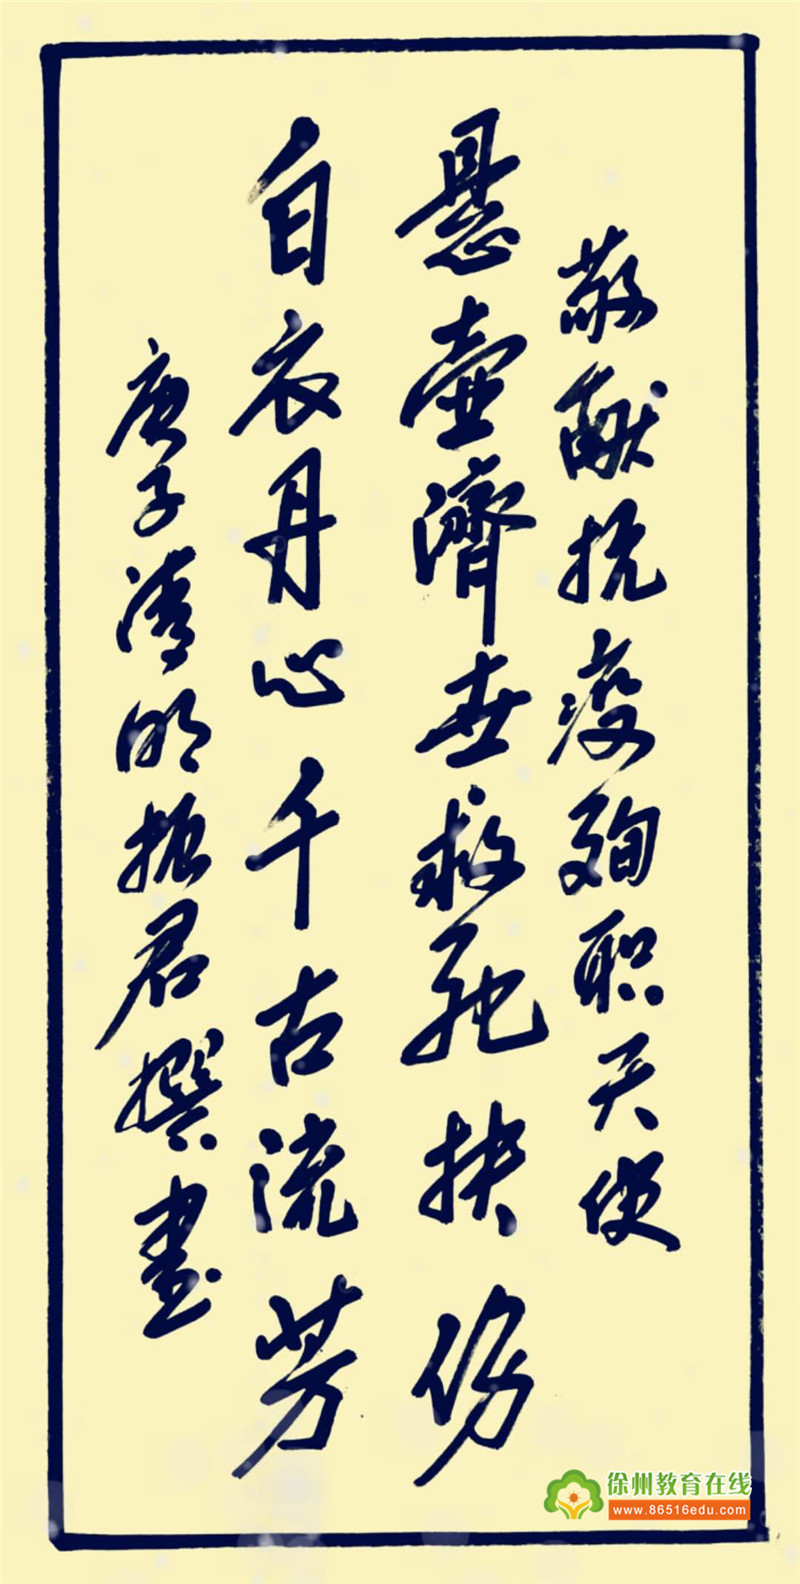 敬献抗疫殉职天使
悬壶濟世救死扶伤
白衣丹心千古流芳
庚子清明振君撰書
徐州教育在线
www.86516edu.com